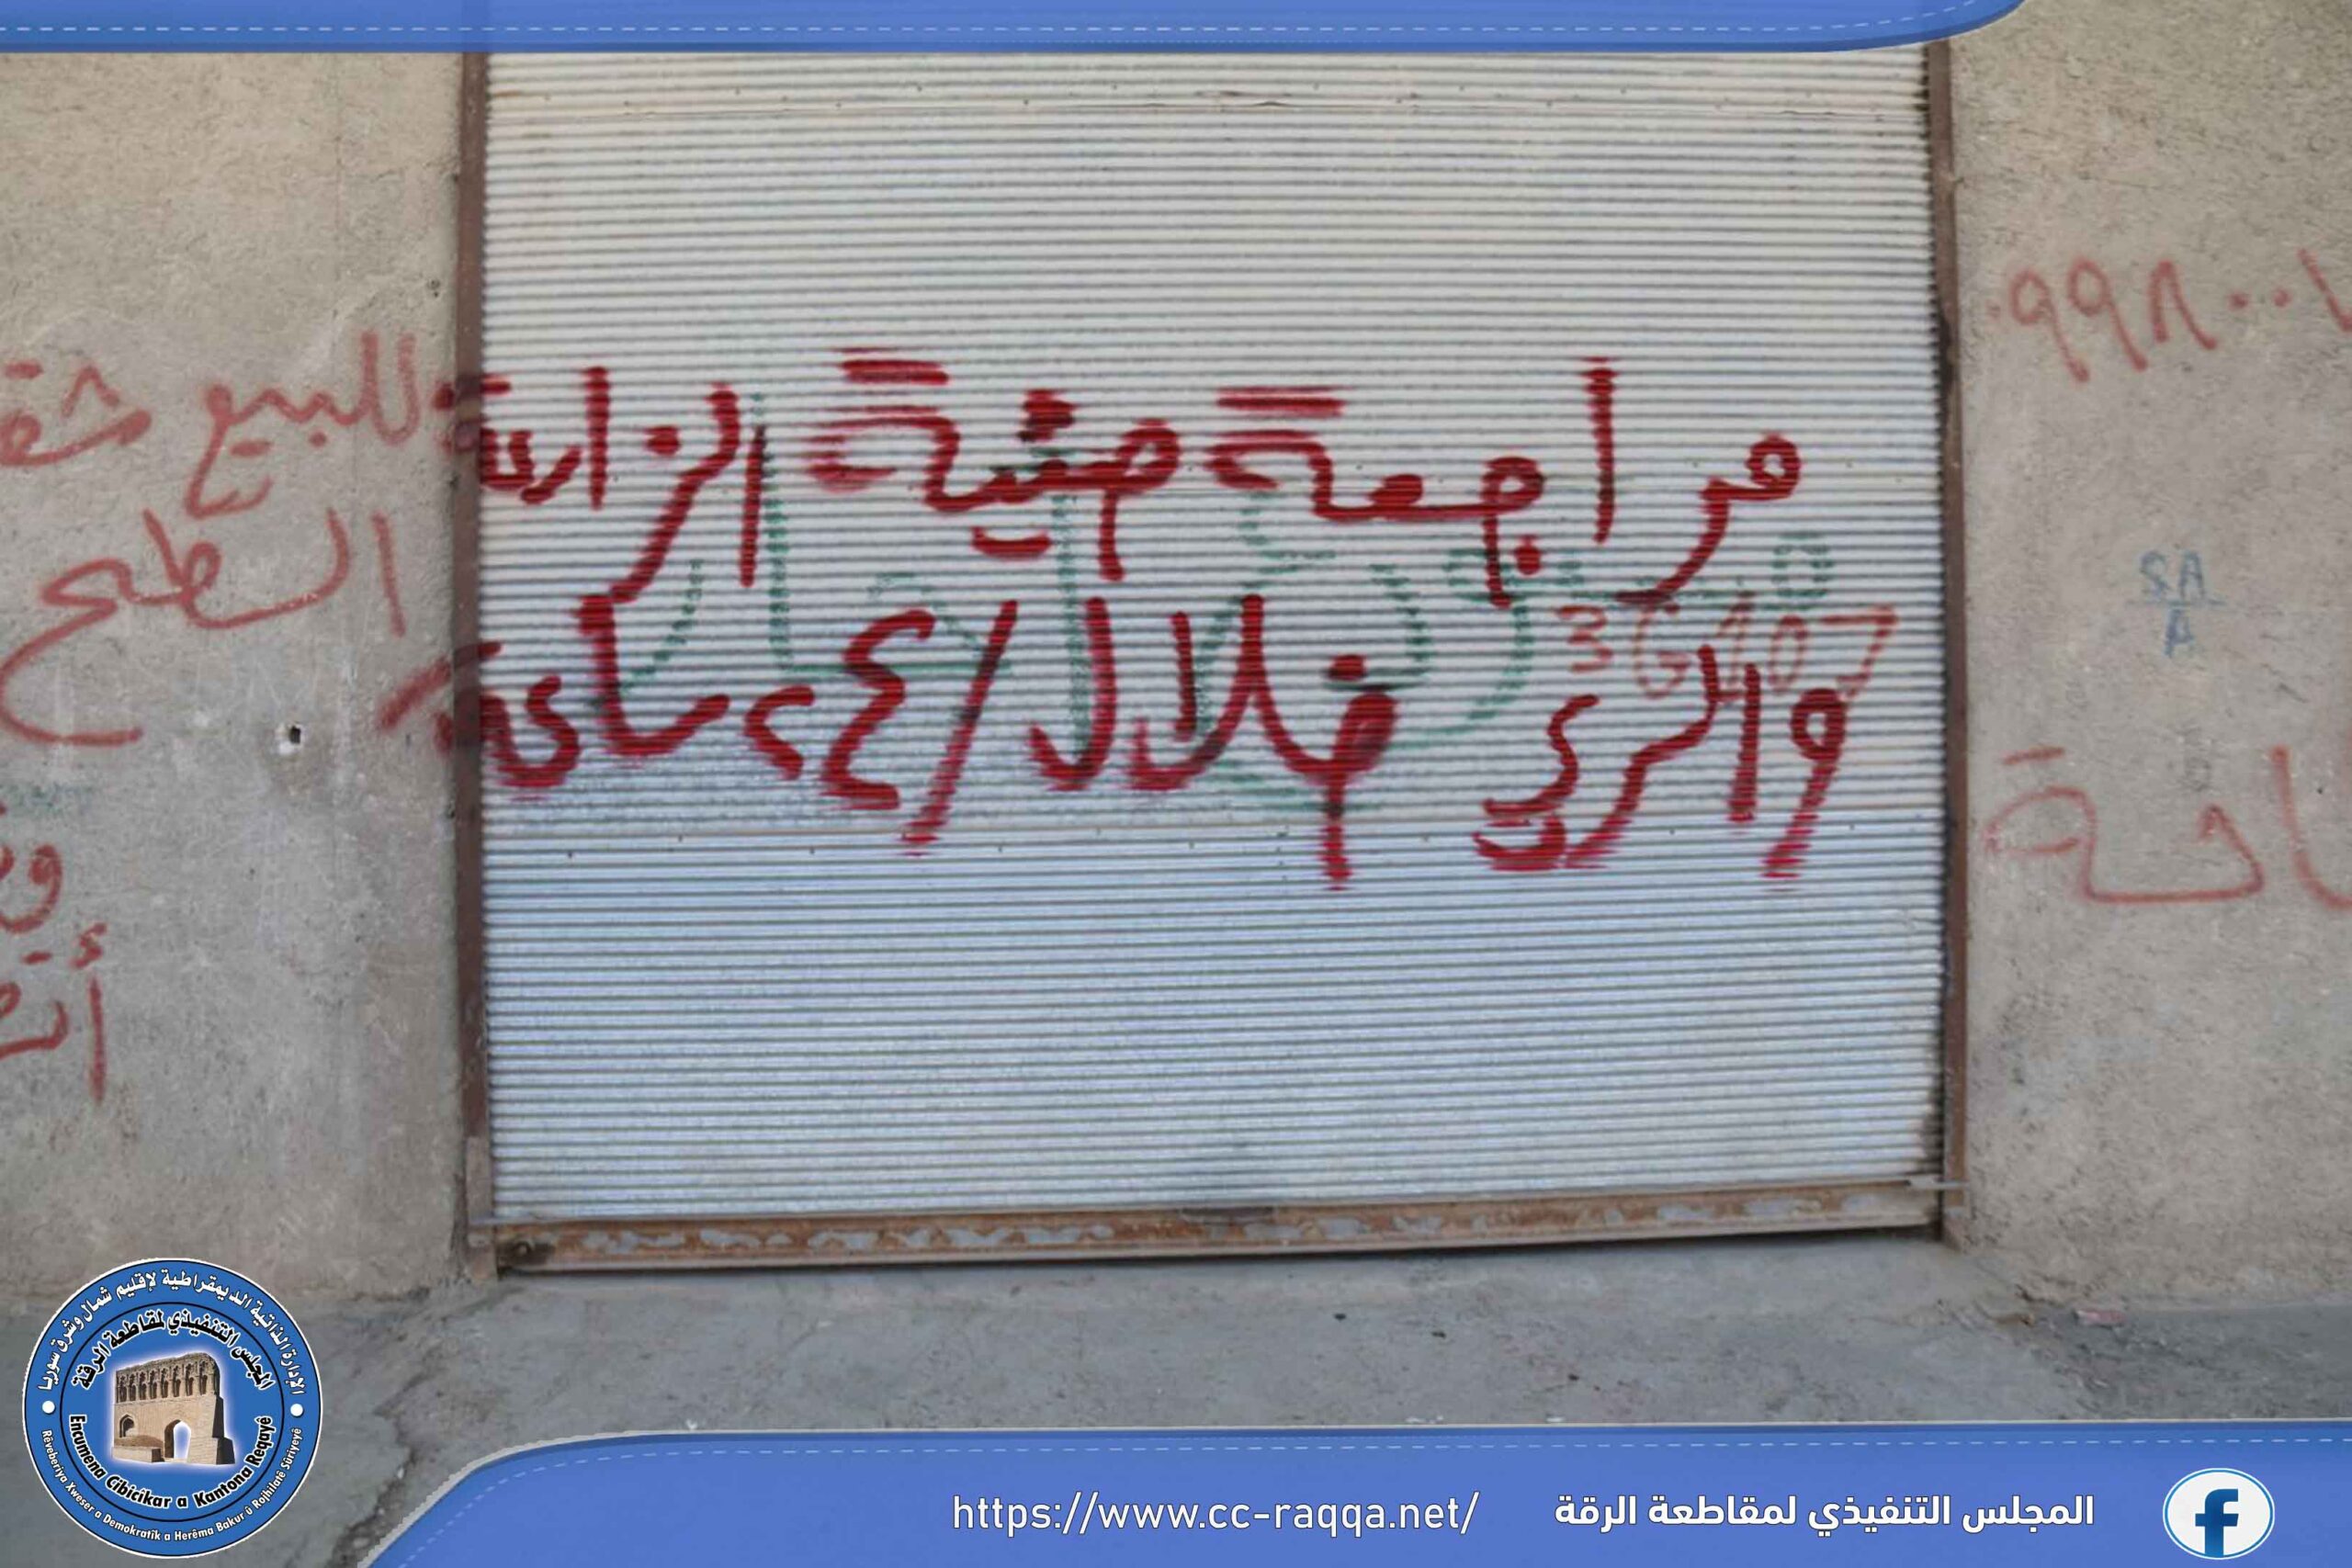 مراجعة هيئة الزراعة
والري خلال / ٢٤ ساعة
للبيع شقة
السطح
٠٩٩٨٠٠١
3G107
SA
A
احة
الإدارة الذاتية الديمقراطية لإقليم شمال وشرق سوريا
المجلس التنفيذي لمقاطعة الرقة
Encumena Cibicîkar a Kantona Reqayê
Rêveberiya Xweser a Demokratîk a Herêma Bakur û Rojhilatê Sûriyeyê
https://www.cc-raqqa.net/
المجلس التنفيذي لمقاطعة الرقة